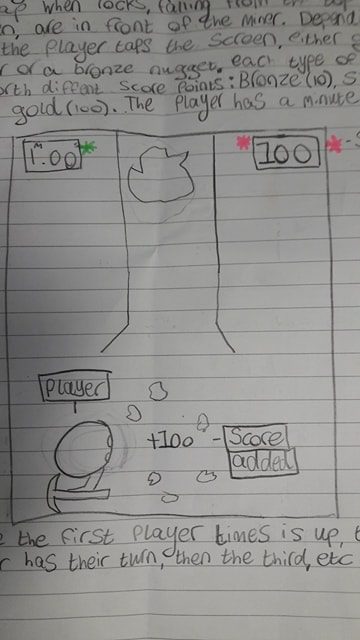 when rocks, falling from the
are in front of the miner. Depend
the player taps the screen, either
or a bronze nugget. each type of
diffent score points: Bronze (10), S
gold (100). The player has a minute
1:00 * * 100 *
Player
+100 - Score
added
the first player times is up, t
has their turn, then the third, etc